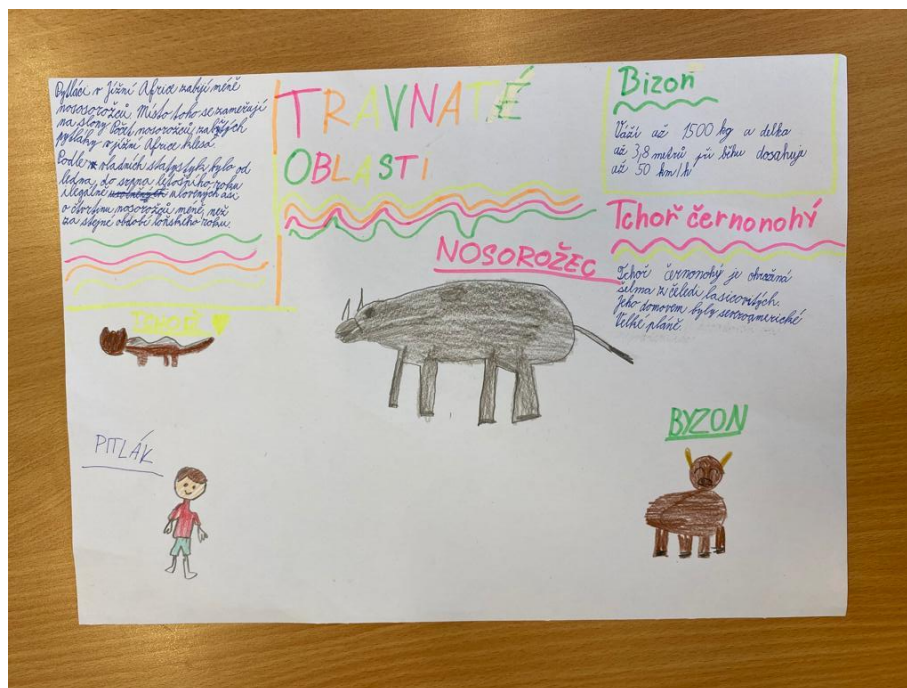 Pytláci v Jižní Africe zabyjí méně
nososorožců. Místo toho se zaměřují
na slony. Počet nosorožců zabytých
pytláky v jižní Africe klesá.
Podle vládních statystyk bylo od
ledna do srpna letošního roku
ilegálně ulovených asi
o čtvrtinu nosorožců méně, než
za stejné období loňského roku.
TRAVNATÉ
OBLASTI
Bizoň
Váží až 1500 kg a delka
až 3,8 mitrů při běhu dosahuje
až 50 km/h
Tchoř černonohý
Tchoř černonohý je ohrožená
šelma z čeledi lasicovitých.
Jeho domovem byly severoamerické
Velké pláně.
NOSOROŽEC
TCHOŘ
PITLÁK
BYZON